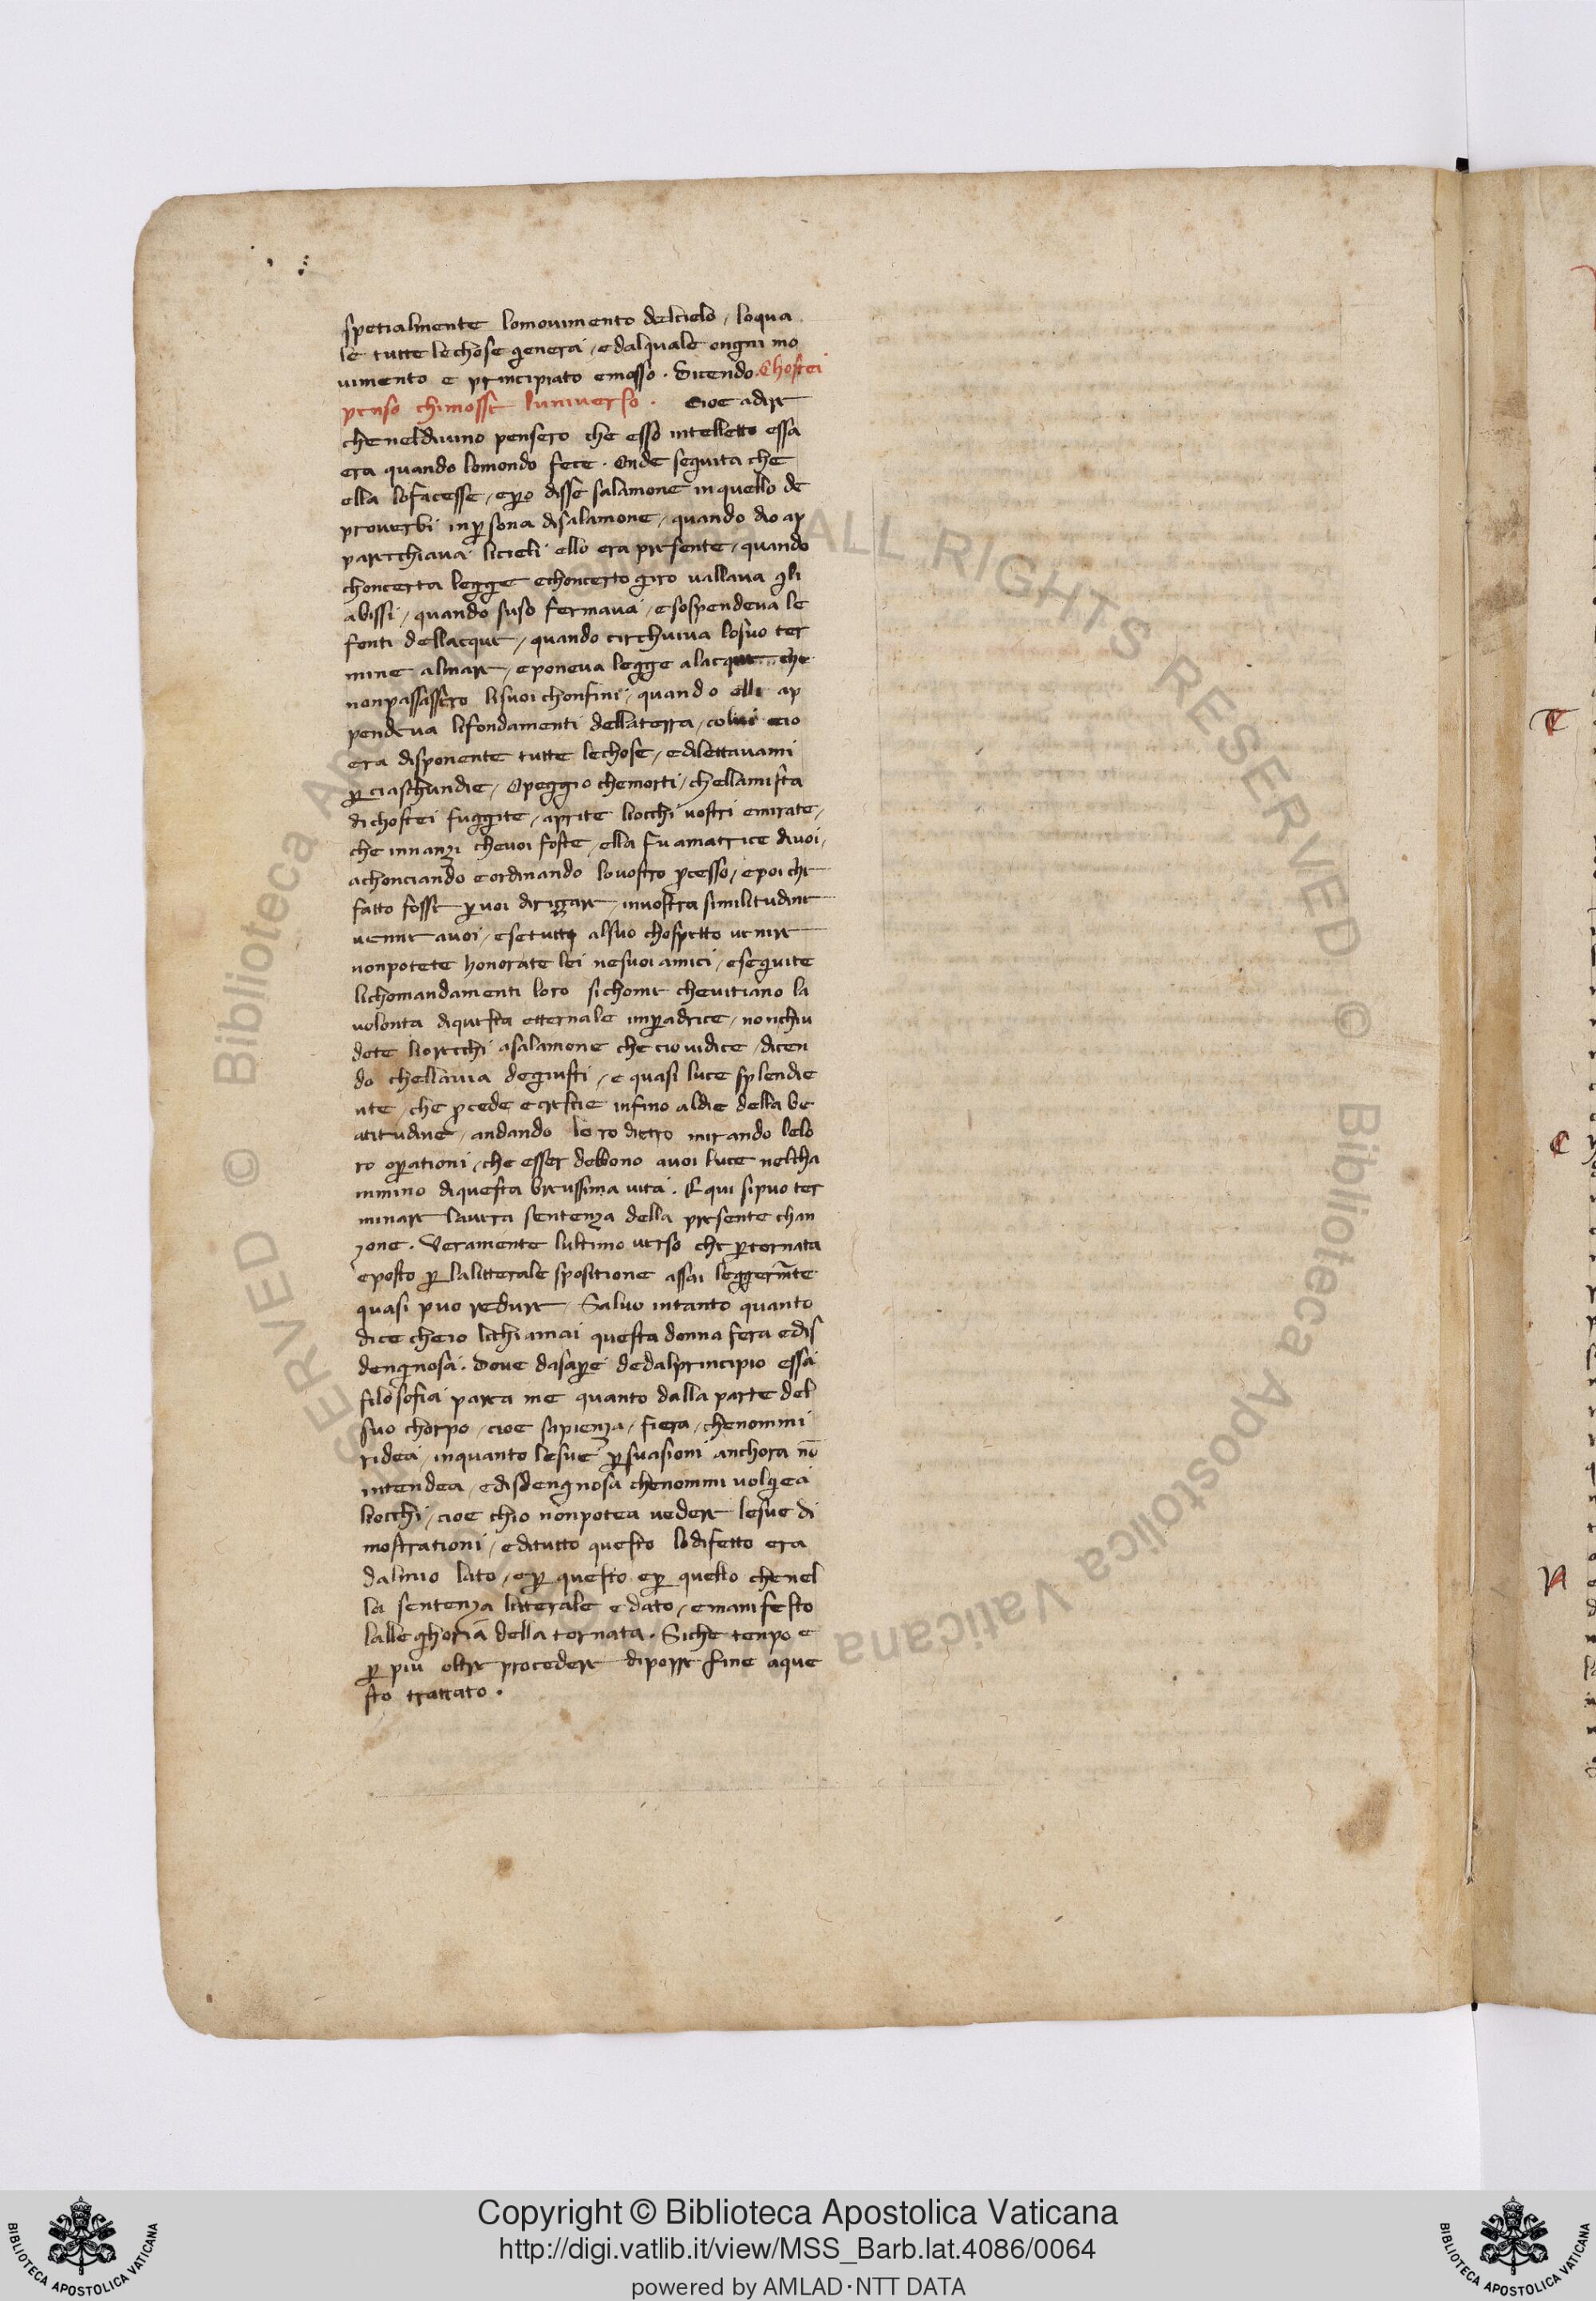 spetialmente lomouimento delcielo / loqua
le tutte lechose genera / edalquale ongni mo
uimento e principiato emosso . Dicendo . Chostei
penso chimosse luniuerso . Cioe adire
cheneldiuino pensero che esso intelletto essa
era quando lomondo fece . Onde seguita che
ella lofacesse / epero disse salamone inquello de
prouerbi inpersona disalamone / quando dio ap
parecchiaua licieli ello era presente / quando
choncerta legge echoncerto giro uallaua gli
abissi / quando suso fermaua / esospendeua le
fonti dellacque / quando circhuiua losuo ter
mine almare / eponeua legge alacque che
nonpassassero lisuoi chonfini / quando elli ap
pendeua lifondamenti dellaterra / colui ecio
era disponente tutte lechose / edilettauami
per ciaschundie / Opeggio chemorti / chellamista
dichostei fuggite / aprite liocchi uostri emirate /
che innanzi cheuoi foste / ella fu amatrice diuoi /
achonciando eordinando louostro processo / epoi che
fatto fosse per uoi dirizzare / inuostra similitudine
uenne auoi / esetutti alsuo chospetto uenire
nonpotete honorate lei nesuoi amici / eseguite
lichomandamenti loro sichome cheuitiano la
uolonta diquesta etternale imperadrice / nonchiu
dete liorecchi asalamone che cio uidice / dicen
do chellauia degiusti / e quasi luce splendie
nte / che procede ecrescie infino aldie della be
atitudine / andando loro dietro mirando lelo
ro operationi / che esser debbono auoi luce nelcha
mmino diquesta breuissima uita . E qui sipuo ter
minare lauera sentenza della presente chan
zone . Veramente lultimo uerso che pertornata
eposto per lalitterale spositione assai leggermente
quasi puo redure / Saluo intanto quanto
dice cheio lichiamai questa donna fera edis
dengnosa . Doue dasapere dedalprincipio essa
filosofia parea me quanto dalla parte del
suo chorpo / cioe sapienza / fiera / chenommi
ridea / inquanto lesue persuasioni anchora nō
intendea / edisdengnosa chenommi uolgiea
liocchi / cioe chio nonpotea uedere lesue di
mostrationi / editutto questo lodifetto era
dalmio lato / eper questo eper quello chenel
la sentenza litterale e dato / emanifesto
lalleghoria della tornata . Siche tenpo e
per piu oltre procedere diporre fine aque
sto trattato .
T
C
N
Copyright © Biblioteca Apostolica Vaticana
http://digi.vatlib.it/view/MSS_Barb.lat.4086/0064
powered by AMLAD·NTT DATA